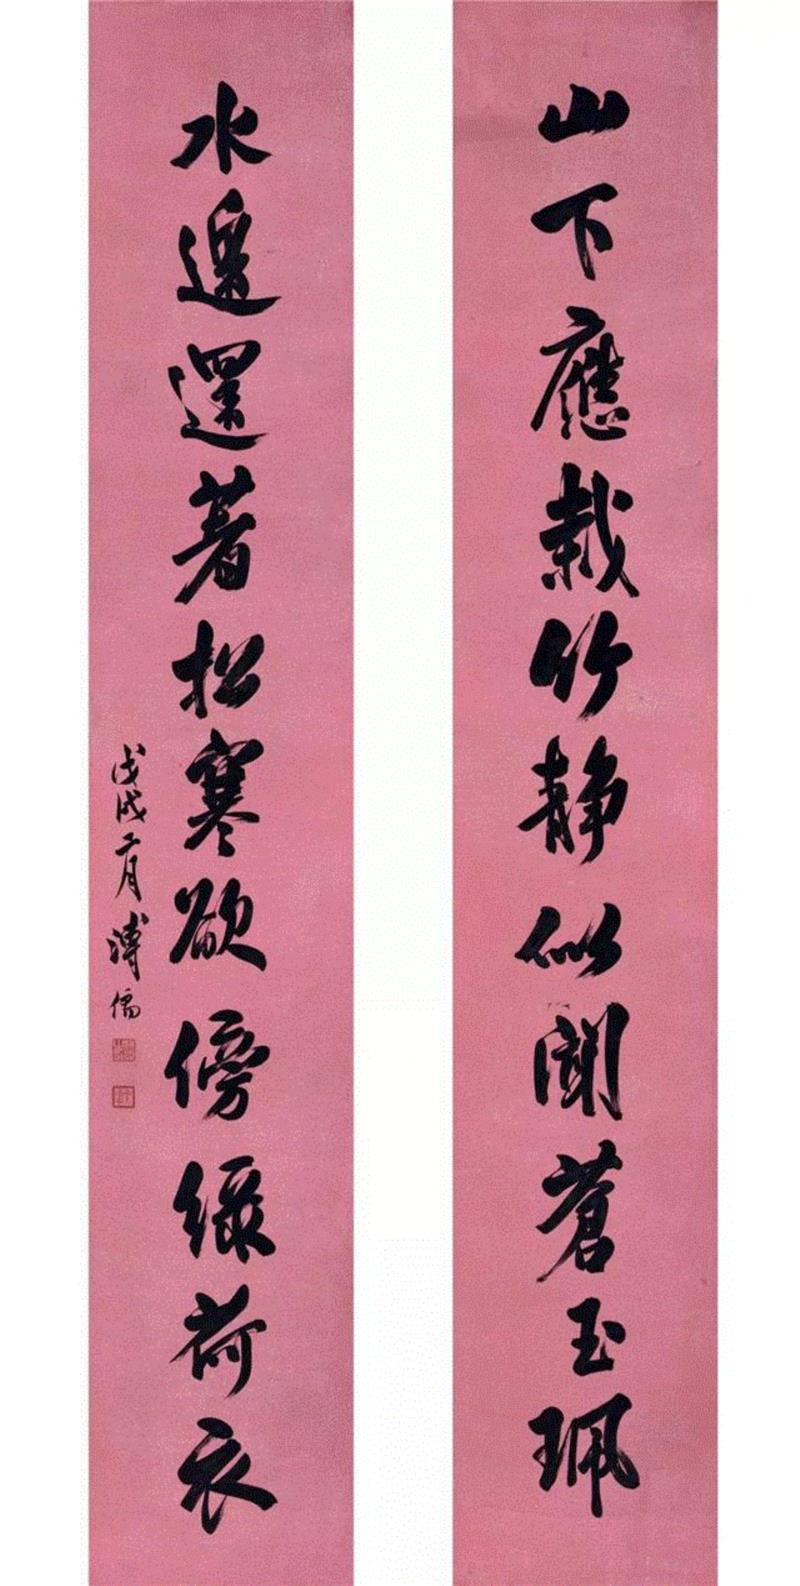 山下應栽竹靜似聞蒼玉珮
水邊還著松寒欲傍綠荷衣
戊戌二月溥儒